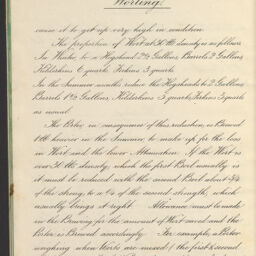 Worting.
cause it to get up very high in condition.
The proportion of Wort at 30 lb density is as follows
In Winter to a Hogshead 2½ Gallons, Barrels 2 Gallons
Kilderkins 6 quarts Firkins 3 quarts.
In the Summer months reduce the Hogsheads to 2 Gallons,
Barrels 1½ Gallons, Kilderkins 3 quarts, Firkins 3 quarts
as usual.
The Porter in consequence of this reduction, is Brewed
1 lb heavier in the Summer, to make up for the loss
in Wort and the lower Attenuation. If the Wort is
over 30 lbs density, which the first Boil usually is
it must be reduced with the second Boil about ¾
of the strong, to ¼ of the second strength, which
usually brings it right. Allowance must be made
in the Brewing for the amount of Wort used and the
Porter is Brewed accordingly. For example, a Porter
weighing when Worts are mixed (the first & second